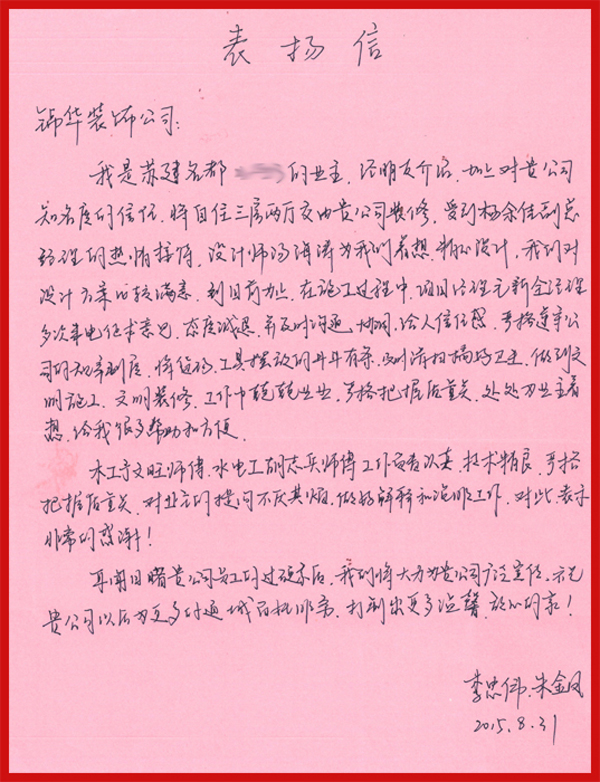 表扬信
锦华装饰公司:
我是苏建名都 的业主,经朋友介绍,加上对贵公司
知名度的信任,将自住三房两厅交由贵公司装修,受到杨余佳副总
经理的热情接待,设计师汤海涛为我们着想,精心设计,我们对
设计方案比较满意,到目前为止,在施工过程中,项目经理 新全经理
多次来电征求意见,态度诚恳,并及时沟通、协调,给人信任感,严格遵守公
司的规章制度,将货物、工具摆放的井井有条, 清扫搞好卫生,做到文
明施工,文明装修,工作中兢兢业业,严格把握质量关,处处为业主着
想,给我很多帮助和方便。
木工 文旺师傅,水电工胡志兵师傅工作负责认真,技术精良,严格
把握质量关,对业主的提问不厌其烦,做好解释和说明工作,对此表示
非常的感谢!
耳闻目睹贵公司员工的过硬 ,我们将大力为贵公司广泛宣传,祝
贵公司以后为更多的 ,打制出更多温馨,放心的家!
李忠伟、朱金凤
2015.8.31